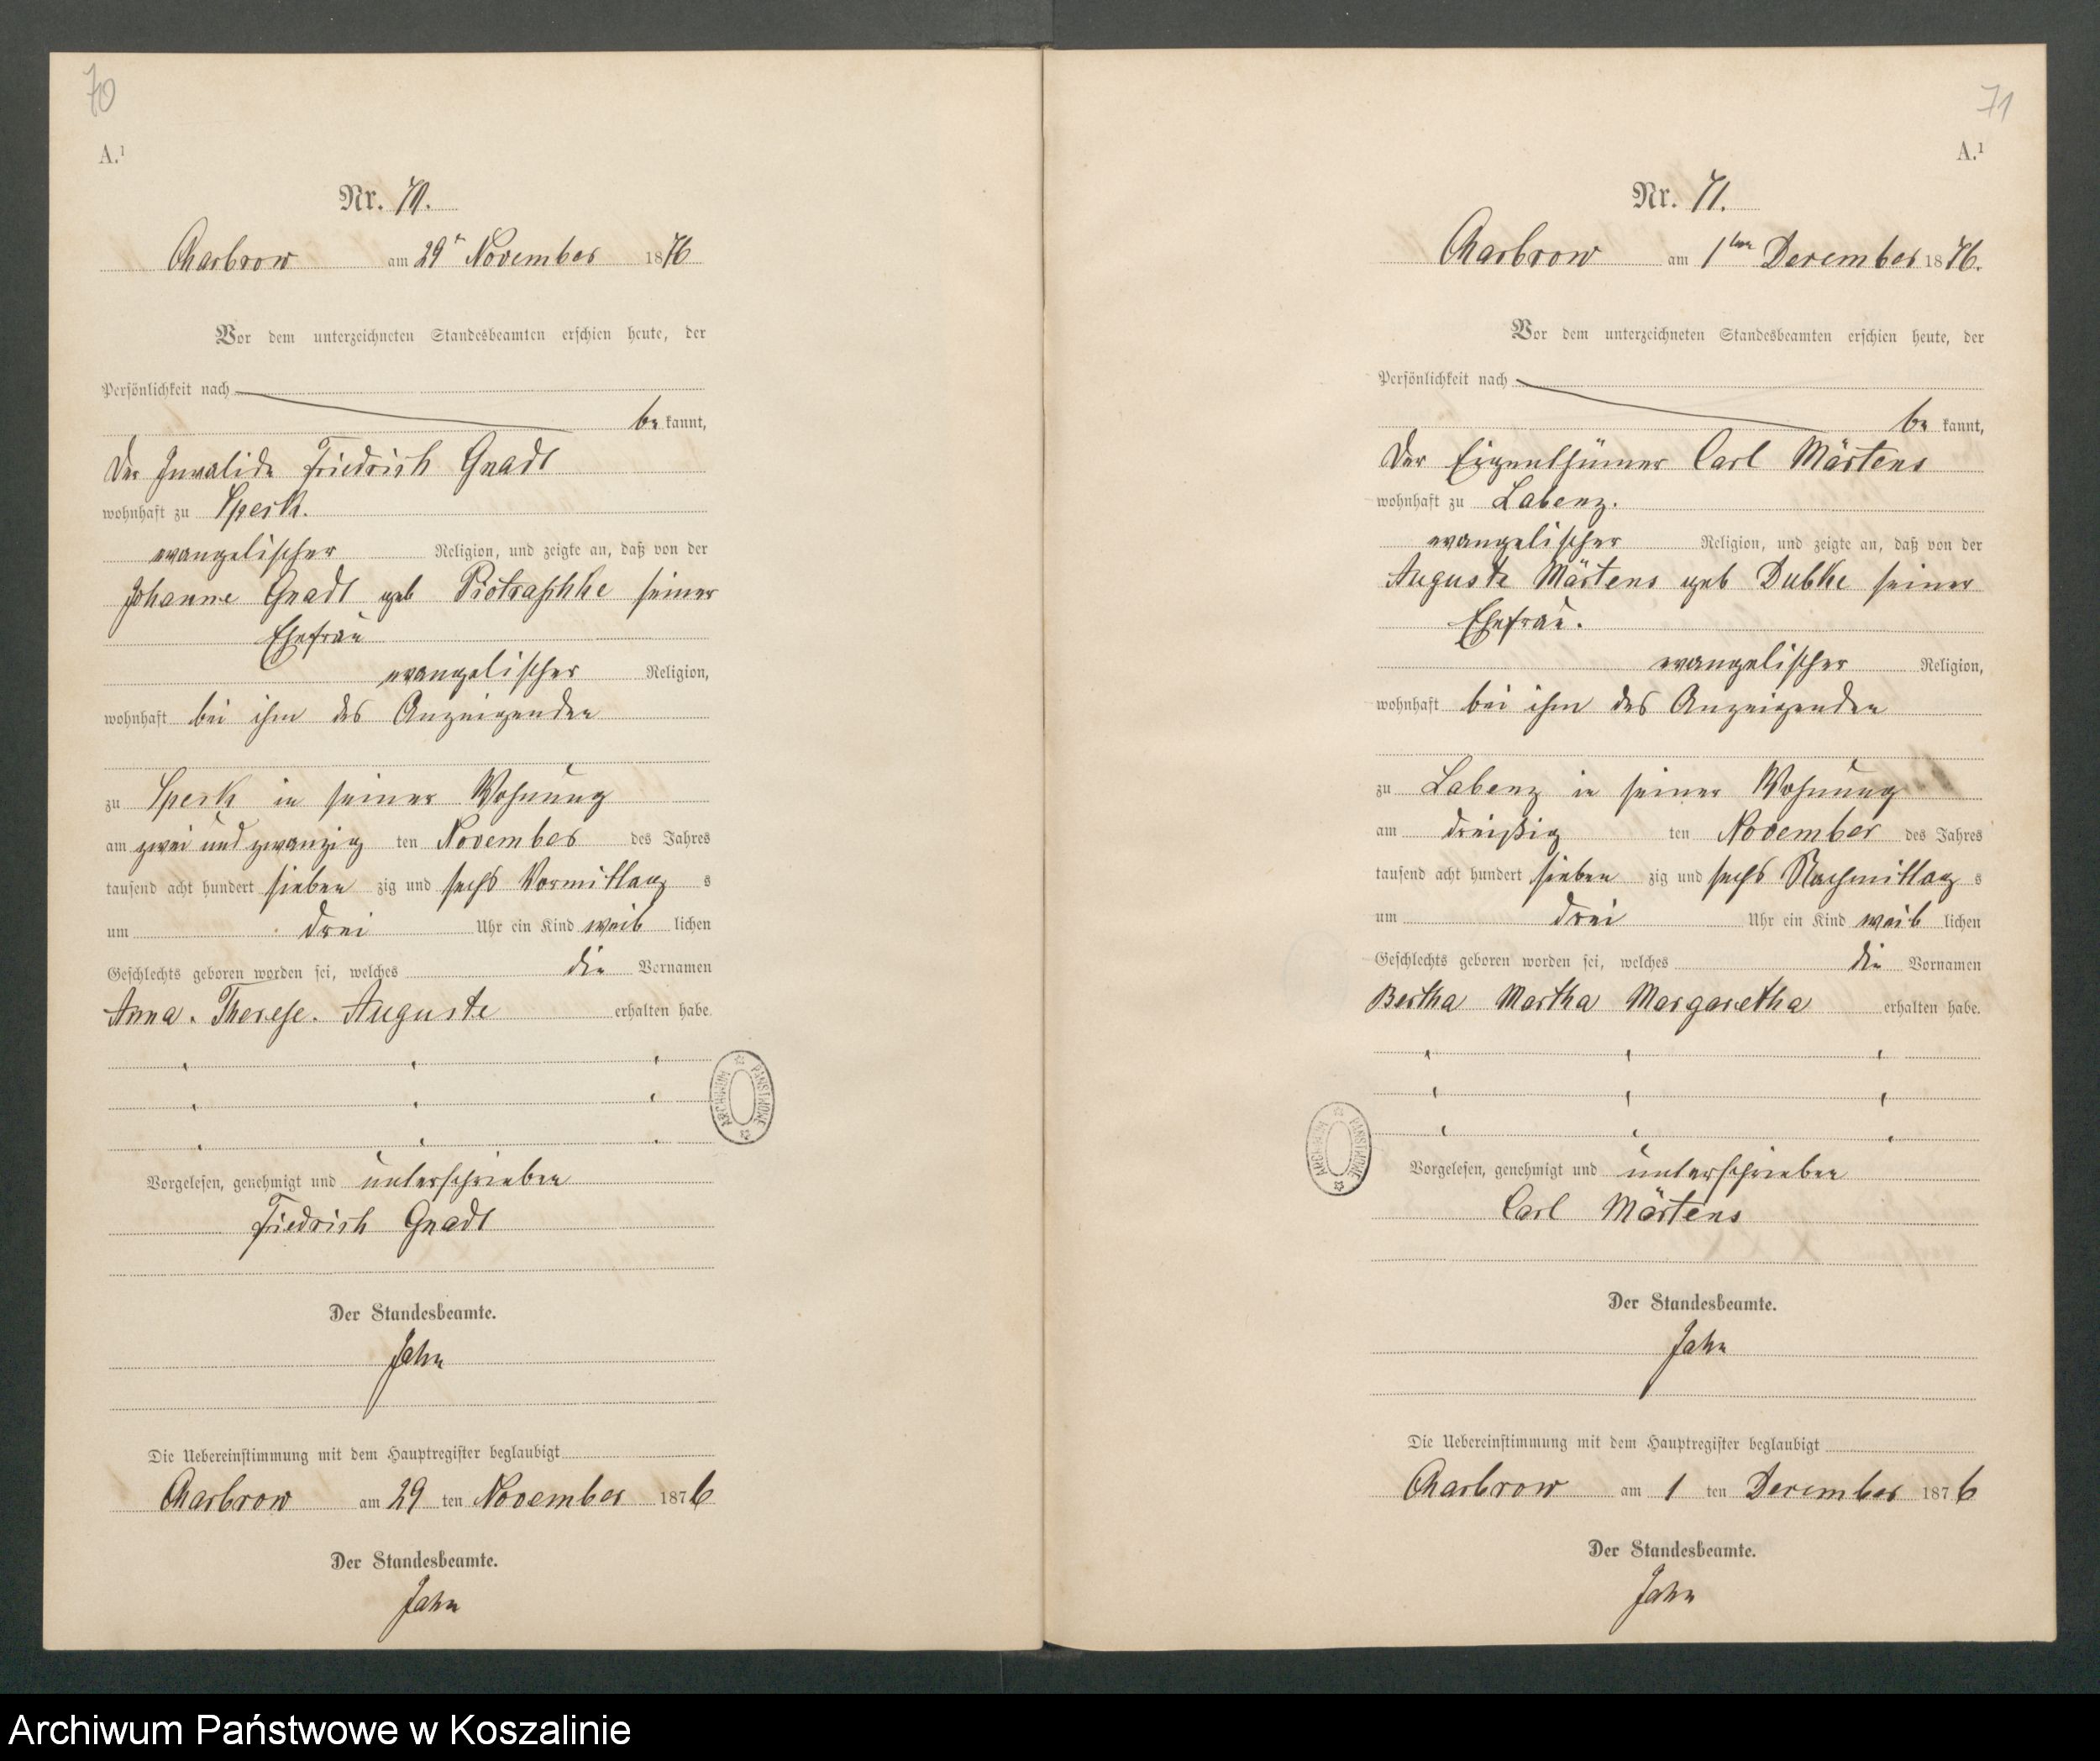 70
A.¹
Nr. 70.
Charbrow am 29ᵗ November 1876
Vor dem unterzeichneten Standesbeamten erschien heute, der
Persönlichkeit nach
be kannt,
der Invalide Friedrich Gnadt
wohnhaft zu Speck.
evangelischer Religion, und zeigte an, daß von der
Johanne Gnadt geb Piotraschke seiner
Ehefrau
evangelischer Religion,
wohnhaft bei ihm des Anzeigenden
zu Speck in seiner Wohnung
am zwei und zwanzig ten November des Jahres
tausend acht hundert sieben zig und sechs Vormittag s
um drei Uhr ein Kind weib lichen
Geschlechts geboren worden sei, welches die Vornamen
Anna. Therese. Auguste erhalten habe.
Vorgelesen, genehmigt und unterschrieben
Friedrich Gnadt
Der Standesbeamte.
Jahn
Die Uebereinstimmung mit dem Hauptregister beglaubigt
Charbrow am 29 ten November 1876
Der Standesbeamte.
Jahn
ARCHIWUM PAŃSTWOWE
71
A.¹
Nr. 71.
Charbrow am 1ten December 1876.
Vor dem unterzeichneten Standesbeamten erschien heute, der
Persönlichkeit nach
be kannt,
der Eigenthümer Carl Märtens
wohnhaft zu Labenz.
evangelischer Religion, und zeigte an, daß von der
Auguste Märtens geb Dubke seiner
Ehefrau.
evangelischer Religion,
wohnhaft bei ihm des Anzeigenden
zu Labenz in seiner Wohnung
am dreißig ten November des Jahres
tausend acht hundert sieben zig und sechs Nachmittag s
um drei Uhr ein Kind weib lichen
Geschlechts geboren worden sei, welches die Vornamen
Bertha Martha Margaretha erhalten habe.
Vorgelesen, genehmigt und unterschrieben
Carl Märtens
Der Standesbeamte.
Jahn
Die Uebereinstimmung mit dem Hauptregister beglaubigt
Charbrow am 1 ten December 1876
Der Standesbeamte.
Jahn
ARCHIWUM PAŃSTWOWE
Archiwum Państwowe w Koszalinie